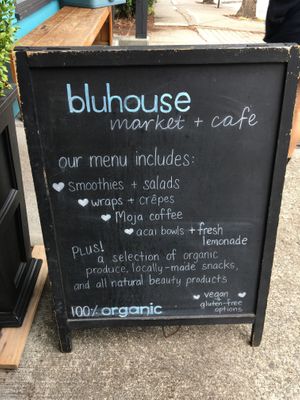 bluhouse
market + café
our menu includes:
smoothies + salads
wraps + crêpes
Moja coffee
acai bowls + fresh
lemonade
PLUS!
a selection of organic
produce, locally-made snacks,
and all natural beauty products
100% organic
vegan +
gluten-free
options